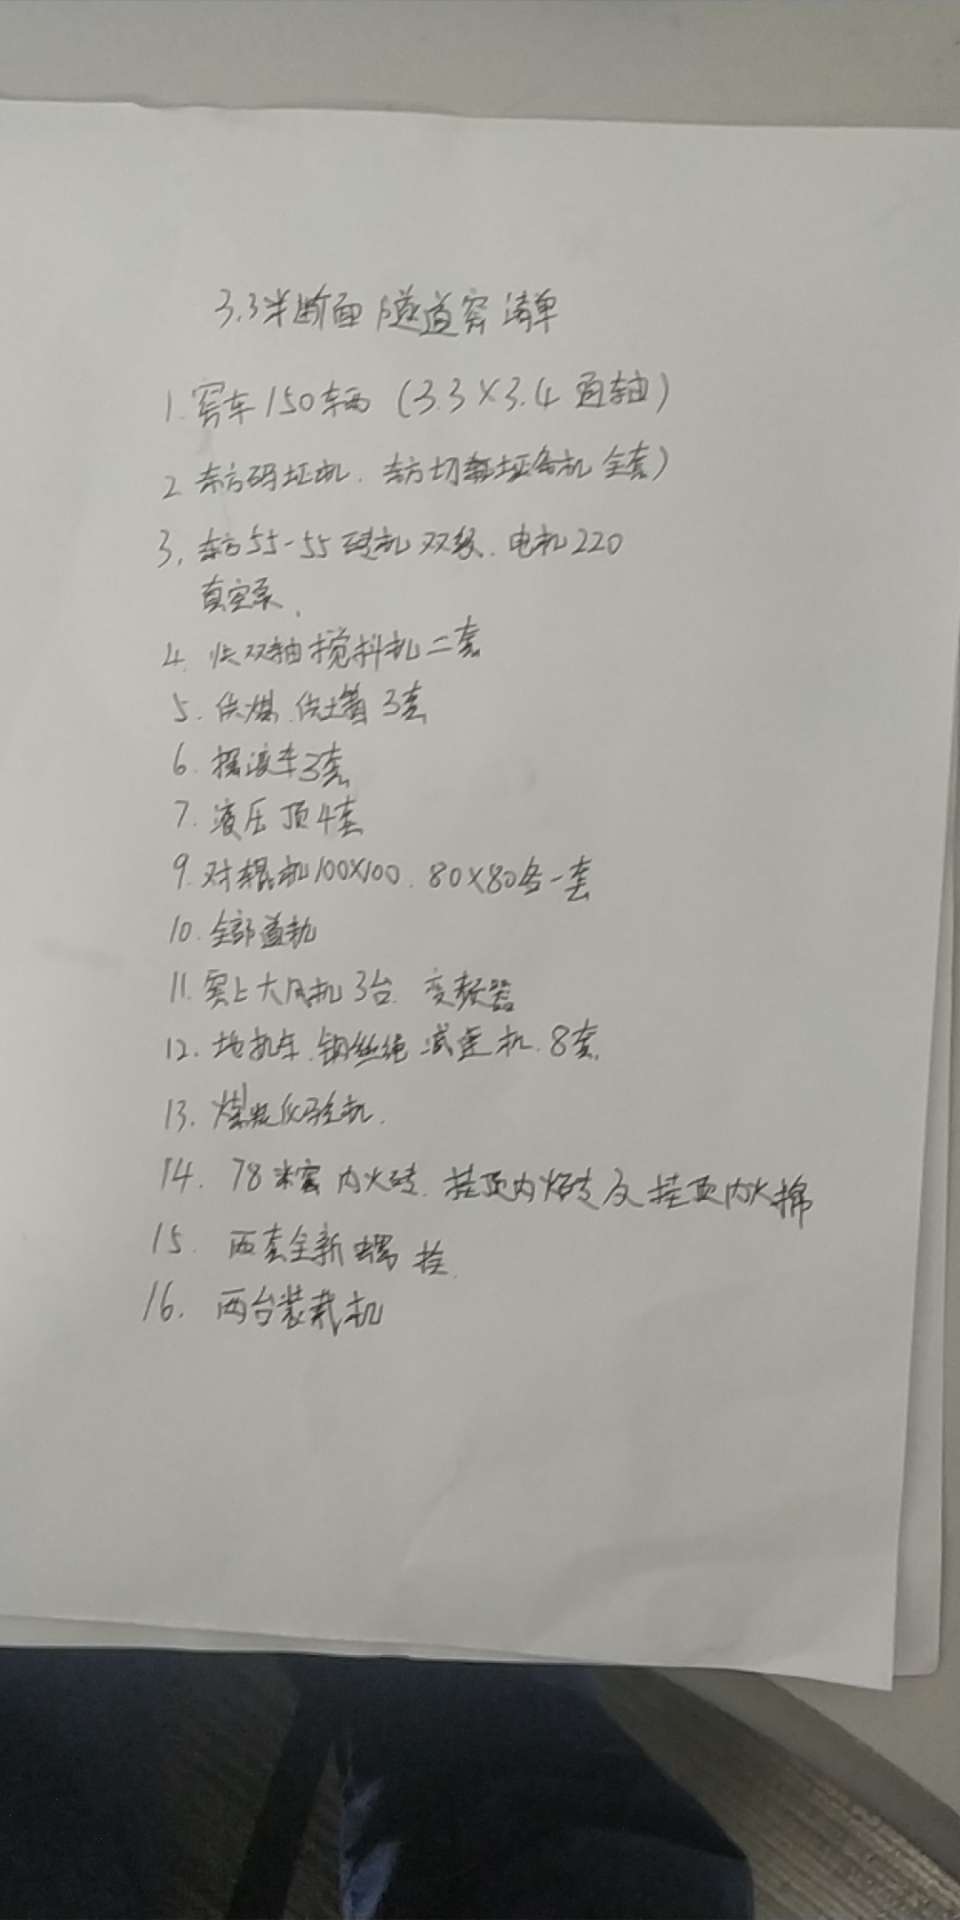 3.3米断面隧道窑清单
1.窑车150辆(3.3×3.4通轴)
2.东方码坯机.东方切条坯机全套)
3.东方55-55砖机双级.电机220
真空泵.
4.双轴搅拌机二套
5.供煤.供土箱3套
6.摆渡车3套
7.液压顶4套
9.对辊机100×100.80×80各一套
10.全部道轨
11.窑上大风机3台.变频器
12.地扒车.钢丝绳减速机.8套.
13.煤炭化验机.
14.78米窑内火砖.挂顶内火砖及挂顶内火棉
15.两套全新螺栓.
16.两台装载机